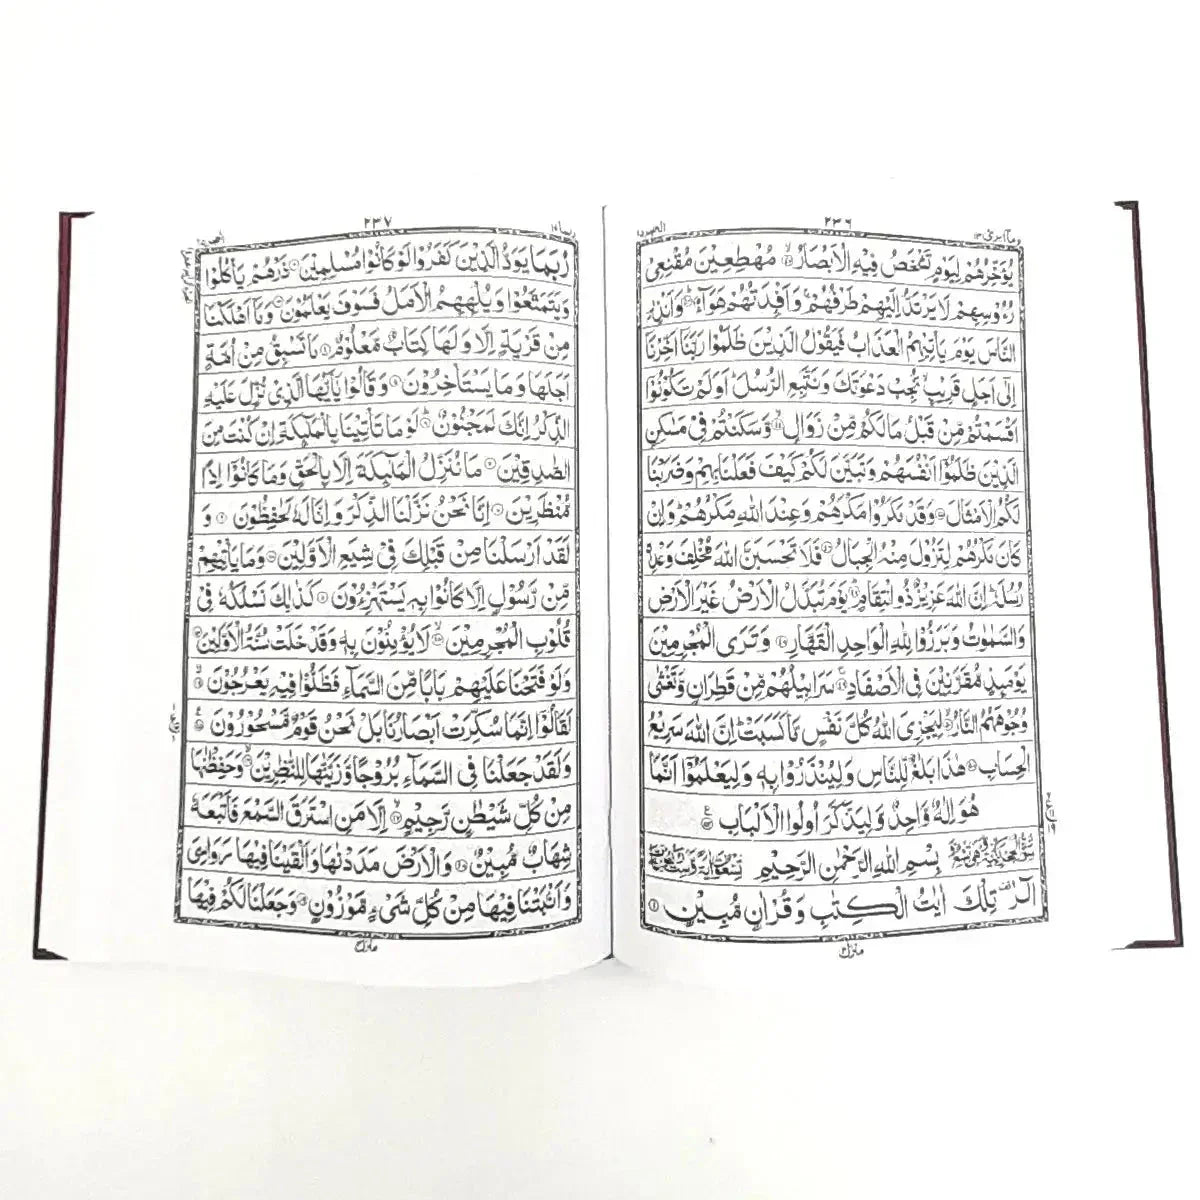 ٢٣٦
يُؤَخِّرُهُمْ لِيَوْمٍ تَشْخَصُ فِيْهِ الْاَبْصَارُ مُهْطِعِيْنَ مُقْنِعِىْ
رُءُوْسِهِمْ لَا يَرْتَدُّ اِلَيْهِمْ طَرْفُهُمْ وَاَفْـِٕدَتُهُمْ هَوَآءٌ وَاَنْذِرِ
النَّاسَ يَوْمَ يَاْتِيْهِمُ الْعَذَابُ فَيَقُوْلُ الَّذِيْنَ ظَلَمُوْا رَبَّنَآ اَخِّرْنَآ
اِلٰٓى اَجَلٍ قَرِيْبٍ نُّجِبْ دَعْوَتَكَ وَنَتَّبِعِ الرُّسُلَ اَوَلَمْ تَكُوْنُوْٓا
اَقْسَمْتُمْ مِّنْ قَبْلُ مَا لَكُمْ مِّنْ زَوَالٍ وَّسَكَنْتُمْ فِىْ مَسٰكِنِ
الَّذِيْنَ ظَلَمُوْٓا اَنْفُسَهُمْ وَتَبَيَّنَ لَكُمْ كَيْفَ فَعَلْنَا بِهِمْ وَضَرَبْنَا
لَكُمُ الْاَمْثَالَ وَقَدْ مَكَرُوْا مَكْرَهُمْ وَعِنْدَ اللّٰهِ مَكْرُهُمْ وَاِنْ
كَانَ مَكْرُهُمْ لِتَزُوْلَ مِنْهُ الْجِبَالُ فَلَا تَحْسَبَنَّ اللّٰهَ مُخْلِفَ وَعْدِهٖ
رُسُلَهٗ اِنَّ اللّٰهَ عَزِيْزٌ ذُو انْتِقَامٍ يَوْمَ تُبَدَّلُ الْاَرْضُ غَيْرَ الْاَرْضِ
وَالسَّمٰوٰتُ وَبَرَزُوْا لِلّٰهِ الْوَاحِدِ الْقَهَّارِ وَتَرَى الْمُجْرِمِيْنَ
يَوْمَئِذٍ مُّقَرَّنِيْنَ فِى الْاَصْفَادِ سَرَابِيْلُهُمْ مِّنْ قَطِرَانٍ وَّتَغْشٰى
وُجُوْهَهُمُ النَّارُ لِيَجْزِىَ اللّٰهُ كُلَّ نَفْسٍ مَّا كَسَبَتْ اِنَّ اللّٰهَ سَرِيْعُ
الْحِسَابِ هٰذَا بَلٰغٌ لِّلنَّاسِ وَلِيُنْذَرُوْا بِهٖ وَلِيَعْلَمُوْٓا اَنَّمَا
هُوَ اِلٰهٌ وَّاحِدٌ وَّلِيَذَّكَّرَ اُولُوا الْاَلْبَابِ
بِسْمِ اللّٰهِ الرَّحْمٰنِ الرَّحِيْمِ
الٓرٰ تِلْكَ اٰيٰتُ الْكِتٰبِ وَقُرْاٰنٍ مُّبِيْنٍ ١
٢٣٧
رُبَمَا يَوَدُّ الَّذِيْنَ كَفَرُوْا لَوْ كَانُوْا مُسْلِمِيْنَ ذَرْهُمْ يَاْكُلُوْا
وَيَتَمَتَّعُوْا وَيُلْهِهِمُ الْاَمَلُ فَسَوْفَ يَعْلَمُوْنَ وَمَآ اَهْلَكْنَا
مِنْ قَرْيَةٍ اِلَّا وَلَهَا كِتَابٌ مَّعْلُوْمٌ مَا تَسْبِقُ مِنْ اُمَّةٍ
اَجَلَهَا وَمَا يَسْتَاْخِرُوْنَ وَقَالُوْا يٰٓاَيُّهَا الَّذِىْ نُزِّلَ عَلَيْهِ
الذِّكْرُ اِنَّكَ لَمَجْنُوْنٌ لَوْ مَا تَاْتِيْنَا بِالْمَلٰٓئِكَةِ اِنْ كُنْتَ مِنَ
الصّٰدِقِيْنَ مَا نُنَزِّلُ الْمَلٰٓئِكَةَ اِلَّا بِالْحَقِّ وَمَا كَانُوْٓا اِذًا
مُّنْظَرِيْنَ اِنَّا نَحْنُ نَزَّلْنَا الذِّكْرَ وَاِنَّا لَهٗ لَحٰفِظُوْنَ وَ
لَقَدْ اَرْسَلْنَا مِنْ قَبْلِكَ فِىْ شِيَعِ الْاَوَّلِيْنَ وَمَا يَاْتِيْهِمْ
مِّنْ رَّسُوْلٍ اِلَّا كَانُوْا بِهٖ يَسْتَهْزِءُوْنَ كَذٰلِكَ نَسْلُكُهٗ فِىْ
قُلُوْبِ الْمُجْرِمِيْنَ لَا يُؤْمِنُوْنَ بِهٖ وَقَدْ خَلَتْ سُنَّةُ الْاَوَّلِيْنَ
وَلَوْ فَتَحْنَا عَلَيْهِمْ بَابًا مِّنَ السَّمَآءِ فَظَلُّوْا فِيْهِ يَعْرُجُوْنَ
لَقَالُوْٓا اِنَّمَا سُكِّرَتْ اَبْصَارُنَا بَلْ نَحْنُ قَوْمٌ مَّسْحُوْرُوْنَ
وَلَقَدْ جَعَلْنَا فِى السَّمَآءِ بُرُوْجًا وَّزَيَّنّٰهَا لِلنّٰظِرِيْنَ وَحَفِظْنٰهَا
مِنْ كُلِّ شَيْطٰنٍ رَّجِيْمٍ اِلَّا مَنِ اسْتَرَقَ السَّمْعَ فَاَتْبَعَهٗ
شِهَابٌ مُّبِيْنٌ وَالْاَرْضَ مَدَدْنٰهَا وَاَلْقَيْنَا فِيْهَا رَوَاسِىَ
وَاَنْۢبَتْنَا فِيْهَا مِنْ كُلِّ شَىْءٍ مَّوْزُوْنٍ وَجَعَلْنَا لَكُمْ فِيْهَا